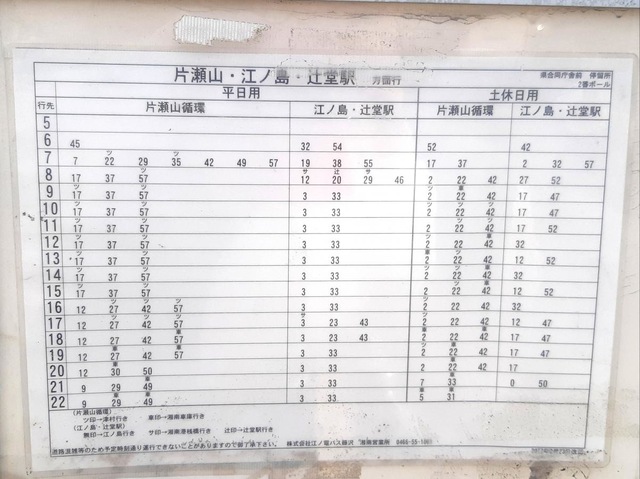 片瀬山・江ノ島・辻堂駅 方面行
県合同庁舎前 停留所
2番ポール
行先 平日用 土休日用
片瀬山循環 江ノ島・辻堂駅 片瀬山循環 江ノ島・辻堂駅
5
6 45 32 54 52 42
7 7 22 29 35 42 49 57 19 38 55 17 37 2 32 57
8 17 37 57 12 20 29 46 2 22 42 27 52
9 17 37 57 3 33 2 22 42 17 47
10 17 37 57 3 33 2 22 42 17 47
11 17 37 57 3 33 2 22 42 17 52
12 17 37 57 3 33 2 22 42 32
13 17 37 57 3 33 2 22 42 12 52
14 17 37 57 3 33 2 22 42 32
15 17 37 57 3 33 2 22 42 12 52
16 12 27 42 57 3 33 2 22 42 32
17 12 27 42 57 3 23 43 2 22 42 12 47
18 12 27 42 57 3 23 43 2 22 42 17 47
19 12 27 42 57 3 33 2 22 42 17 47
20 12 30 50 3 33 2 22 42 17
21 9 29 49 3 33 7 33 0 50
22 9 29 49 3 33 5 31
(片瀬山循環)
ツ印→津村行き 車印→湘南車庫行き
(江ノ島・辻堂駅)
無印→江ノ島行き サ印→湘南港桟橋行き 辻印→辻堂駅行き
道路混雑等のため予定時刻通り運行できないことがありますので御了承下さい。 株式会社江ノ電バス藤沢 湘南営業所